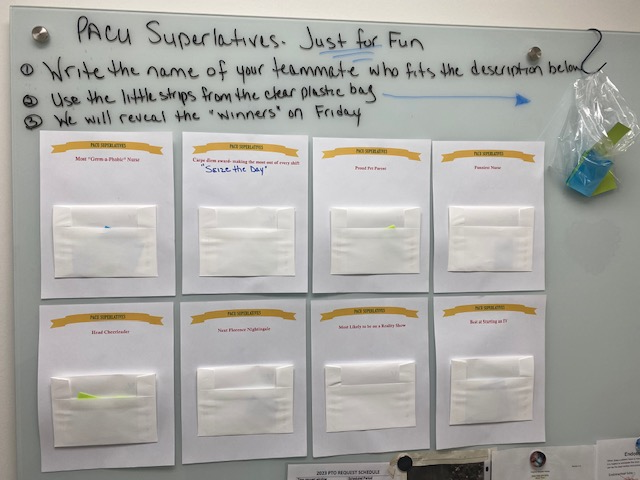 PACU Superlatives. Just for Fun
① Write the name of your teammate who fits the description below
② Use the little strips from the clear plastic bag
③ We will reveal the "winners" on Friday
PACU SUPERLATIVES
Most "Germ-a-Phobic" Nurse
PACU SUPERLATIVES
Carpe diem award- making the most out of every shift
"Seize the Day"
PACU SUPERLATIVES
Proud Pet Parent
PACU SUPERLATIVES
Funniest Nurse
PACU SUPERLATIVES
Head Cheerleader
PACU SUPERLATIVES
Next Florence Nightingale
PACU SUPERLATIVES
Most Likely to be on a Reality Show
PACU SUPERLATIVES
Best at Starting an IV
2023 PTO REQUEST SCHEDULE